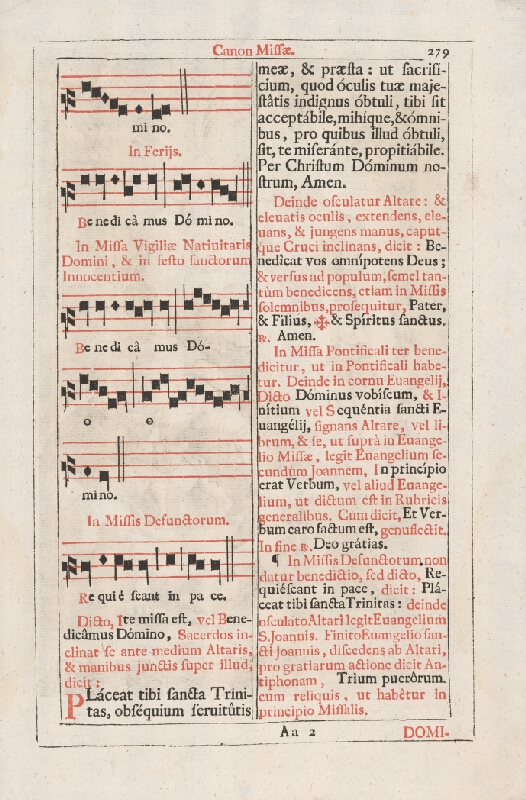 Canon Missæ. 279
mi no.
In Ferijs.
Be ne di cà mus Dó mi no.
In Missa Vigiliæ Natiuitatis
Domini, & in festo sanctorum
Innocentium.
Be ne di cà mus Dó-
o o
mi no.
In Missis Defunctorum.
Re qui é scant in pa ce.
Dicto, Ite missa est, vel Bene-
dicâmus Dómino, Sacerdos in-
clinat se ante medium Altaris,
& manibus junctis super illud,
dicit:
PLáceat tibi sancta Trini-
tas, obséquium seruitûtis
meæ, & præsta: ut sacrifi-
cium, quod óculis tuæ maje-
stâtis indignus óbtuli, tibi sit
acceptábile, mihíque, & ómni-
bus, pro quibus illud óbtuli,
sit, te miseránte, propitiábile.
Per Christum Dóminum no-
strum, Amen.
Deinde osculatur Altare: &
eleuatis oculis, extendens, ele-
uans, & jungens manus, caput-
que Cruci inclinans, dicit: Be-
nedícat vos omnípotens Deus;
& versus ad populum, semel tan-
tùm benedicens, etiam in Missis
solemnibus, prosequitur, Pater,
& Filius, ✠ & Spíritus sanctus.
℟. Amen.
In Missa Pontificali ter bene-
dicitur, ut in Pontificali habe-
tur. Deinde in cornu Euangelij,
Dicto Dóminus vobíscum, & I-
nítium vel Sequéntia sancti E-
uangélij, signans Altare, vel li-
brum, & se, ut suprà in Euange-
lio Missæ, legit Euangelium se-
cundùm Joannem, In princípio
erat Verbum, vel aliud Euange-
lium, ut dictum est in Rubricis
generalibus. Cum dicit, Et Ver-
bum caro factum est, genuflectit.
In fine ℟. Deo grátias.
¶ In Missis Defunctorum non
datur benedictio, sed dicto, Re-
quiéscant in pace, dicit: Plá-
ceat tibi sancta Trinitas: deinde
osculato Altari legit Euangelium
S. Joannis. Finito Euangelio san-
cti Joannis, discedens ab Altari,
pro gratiarum actione dicit An-
tiphonam, Trium puerôrum.
cum reliquis, ut habêtur in
principio Missalis.
Aa 2 DOMI-